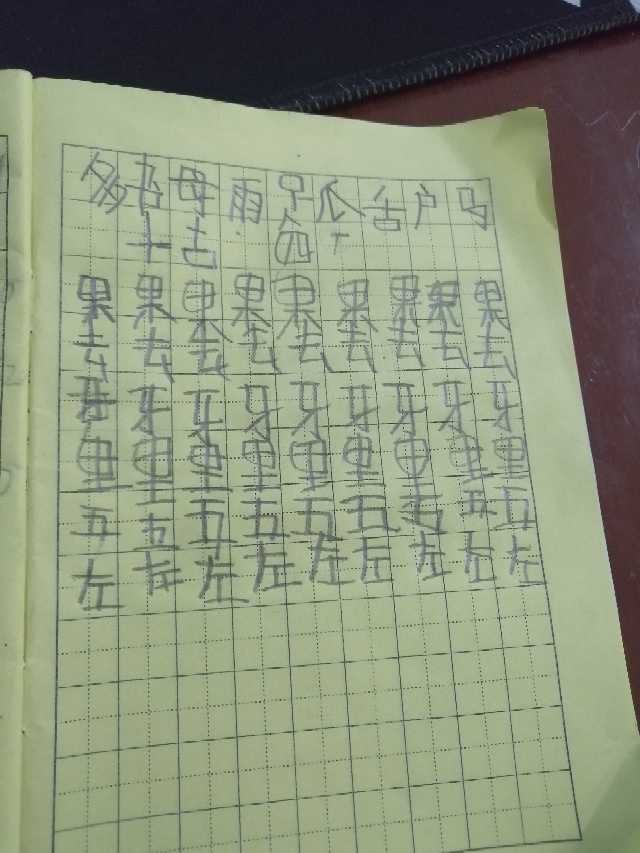 多 母 雨 足 瓜 舌 户 马
十 古
果 果 果 果 果 果 果 果 果
去 去 去 去 去 去 去 去 去
牙 牙 牙 牙 牙 牙 牙 牙
里 里 里 里 里 里 里 里 里
五 五 五 五 五 五 五 五 五
左 左 左 左 左 左 左 左 左